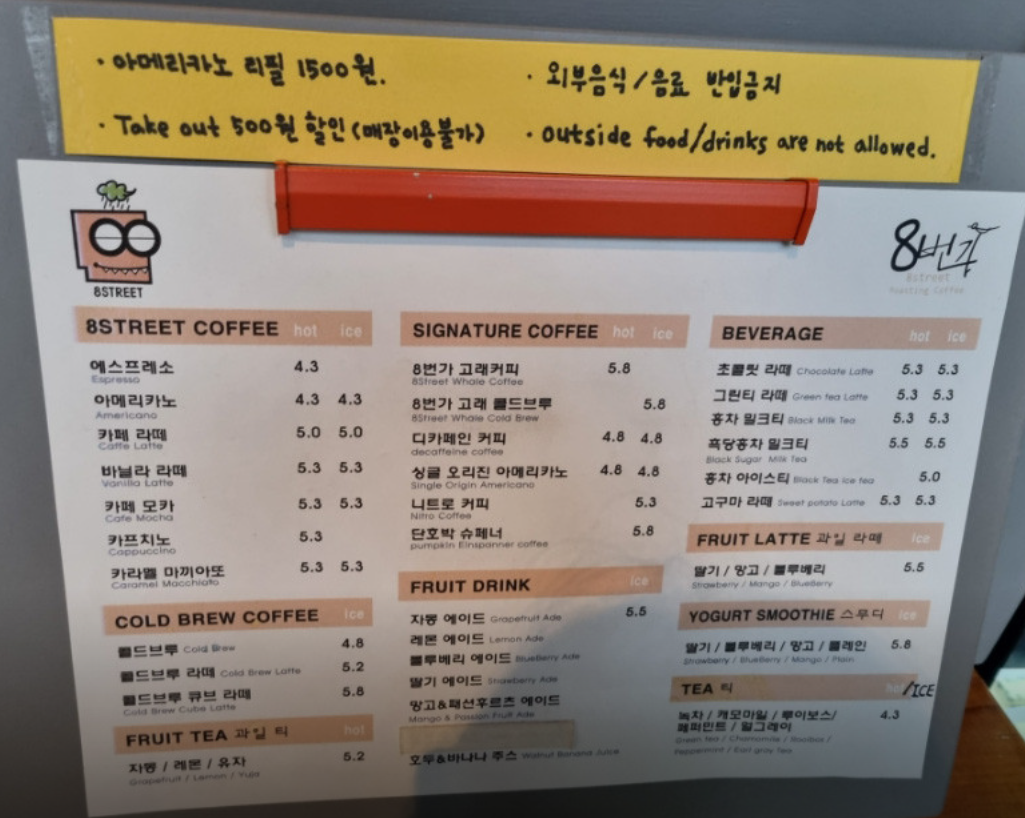 · 아메리카노 리필 1500원.
· Take out 500원 할인 (매장이용불가)
· 외부음식/음료 반입금지
· outside food/drinks are not allowed.
8STREET
8번가
8street
Roasting Coffee
8STREET COFFEE hot ice
에스프레소 4.3
Espresso
아메리카노 4.3 4.3
Americano
카페 라떼 5.0 5.0
Caffe Latte
바닐라 라떼 5.3 5.3
Vanilla Latte
카페 모카 5.3 5.3
Cafe Mocha
카프치노 5.3
Cappuccino
카라멜 마끼아또 5.3 5.3
Caramel Macchiato
COLD BREW COFFEE ice
콜드브루 Cold Brew 4.8
콜드브루 라떼 Cold Brew Latte 5.2
콜드브루 큐브 라떼 5.8
Cold Brew Cube Latte
FRUIT TEA 과일 티 hot
자몽 / 레몬 / 유자 5.2
Grapefruit / Lemon / Yuja
SIGNATURE COFFEE hot ice
8번가 고래커피 5.8
8Street Whale Coffee
8번가 고래 콜드브루 5.8
8Street Whale Cold Brew
디카페인 커피 4.8 4.8
decaffeine coffee
싱글 오리진 아메리카노 4.8 4.8
Single Origin Americano
니트로 커피 5.3
Nitro Coffee
단호박 슈페너 5.8
pumpkin Einspanner coffee
FRUIT DRINK ice
자몽 에이드 Grapefruit Ade 5.5
레몬 에이드 Lemon Ade
블루베리 에이드 BlueBerry Ade
딸기 에이드 Strawberry Ade
망고&패션후르츠 에이드
Mango & Passion Fruit Ade
호두&바나나 주스 Walnut Banana Juice
BEVERAGE hot ice
초콜릿 라떼 Chocolate Latte 5.3 5.3
그린티 라떼 Green tea Latte 5.3 5.3
홍차 밀크티 Black Milk Tea 5.3 5.3
흑당홍차 밀크티 5.5 5.5
Black Sugar Milk Tea
홍차 아이스티 Black Tea ice tea 5.0
고구마 라떼 Sweet potato Latte 5.3 5.3
FRUIT LATTE 과일 라떼 ice
딸기 / 망고 / 블루베리 5.5
Strawberry / Mango / BlueBerry
YOGURT SMOOTHIE 스무디 ice
딸기 / 블루베리 / 망고 / 플레인 5.8
Strawberry / BlueBerry / Mango / Plain
TEA 티 hot /ICE
녹차 / 캐모마일 / 루이보스/ 4.3
페퍼민트 / 얼그레이
Green tea / Chamomile / Rooibos /
Peppermint / Earl gray Tea